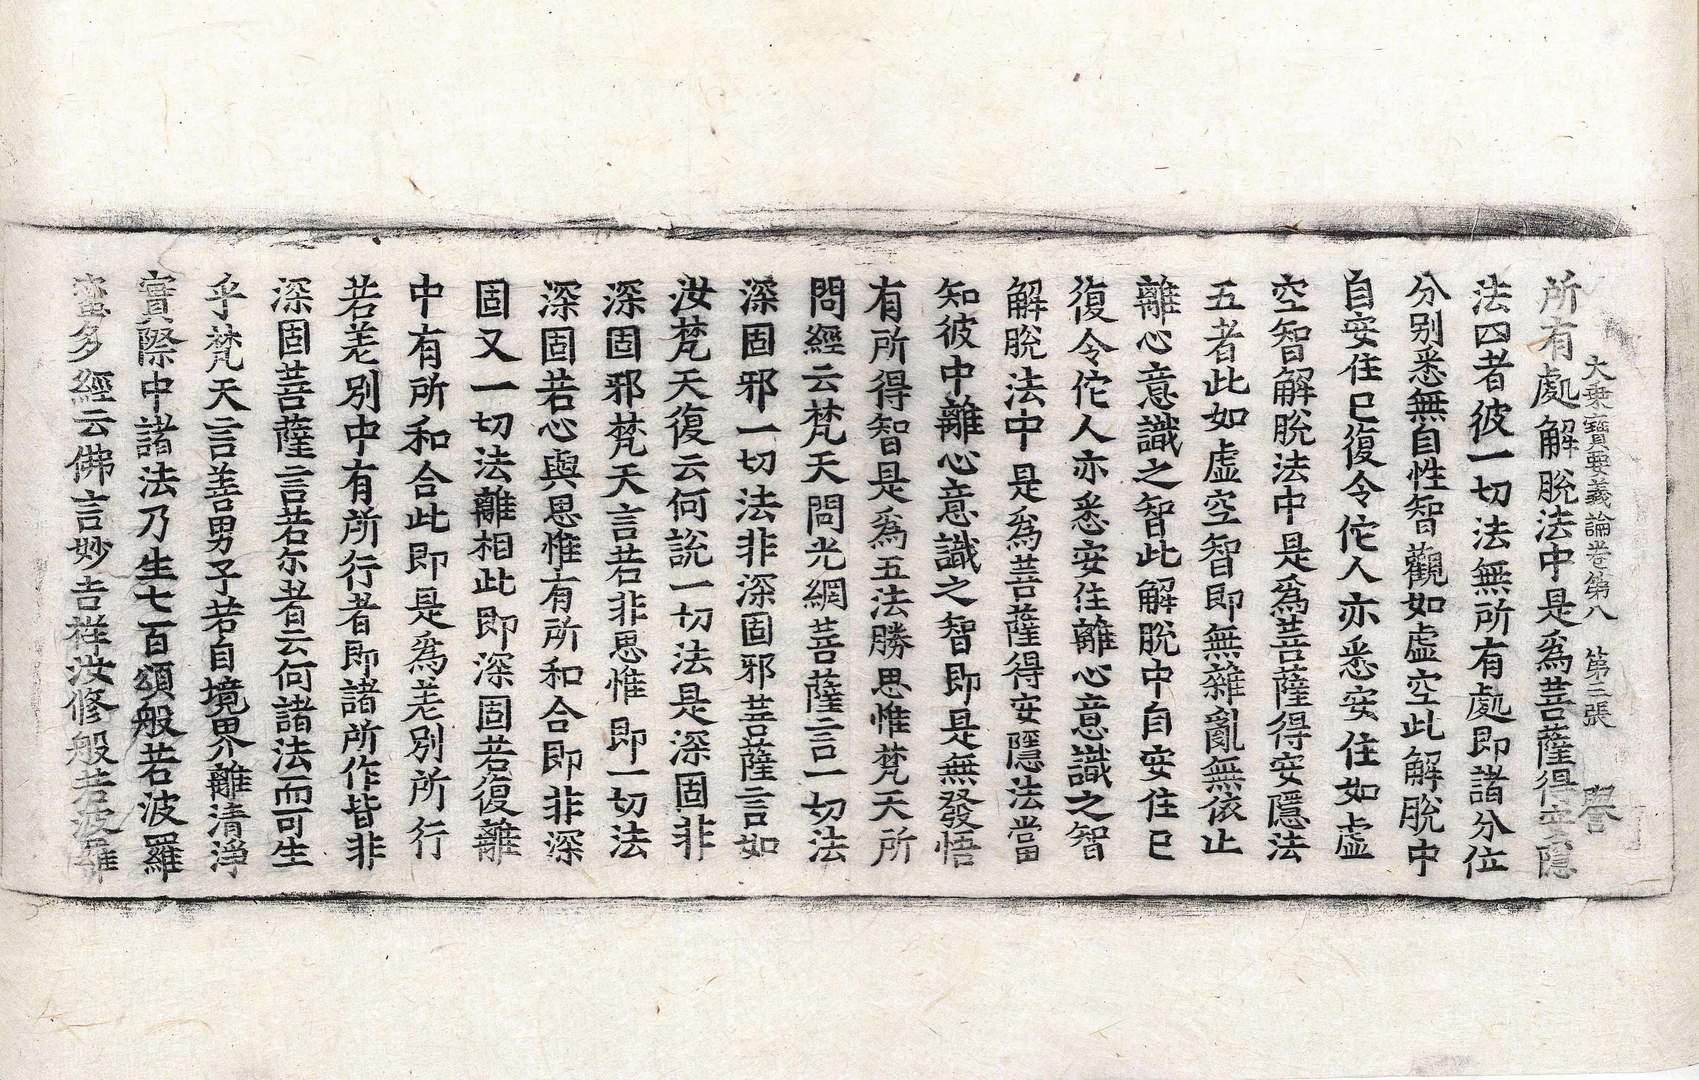 大乘寶要義論卷第八　第三張　輿
所有處解脫法中是爲菩薩得安隱
法四者彼一切法無所有處即諸分位
分別悉無自性智觀如虛空此解脫中
自安住已復令佗人亦悉安住如虛
空智解脫法中是爲菩薩得安隱法
五者此如虛空智即無雜亂無依止
離心意識之智此解脫中自安住已
復令佗人亦悉安住離心意識之智
解脫法中是爲菩薩得安隱法當
知彼中離心意識之智即是無發悟
有所得智是爲五法勝思惟梵天所
問經云梵天問光網菩薩言一切法
深固邪一切法非深固邪菩薩言如
汝梵天復云何說一切法是深固非
深固邪梵天言若非思惟即一切法
深固若心與思惟有所和合即非深
固又一切法離相此即深固若復離
中有所和合此即是爲差別所行
若差別中有所行者即諸所作皆非
深固菩薩言若尒者云何諸法而可生
乎梵天言善男子若自境界離清淨
實際中諸法乃生七百頌般若波羅
蜜多經云佛言妙吉祥汝修般若波羅